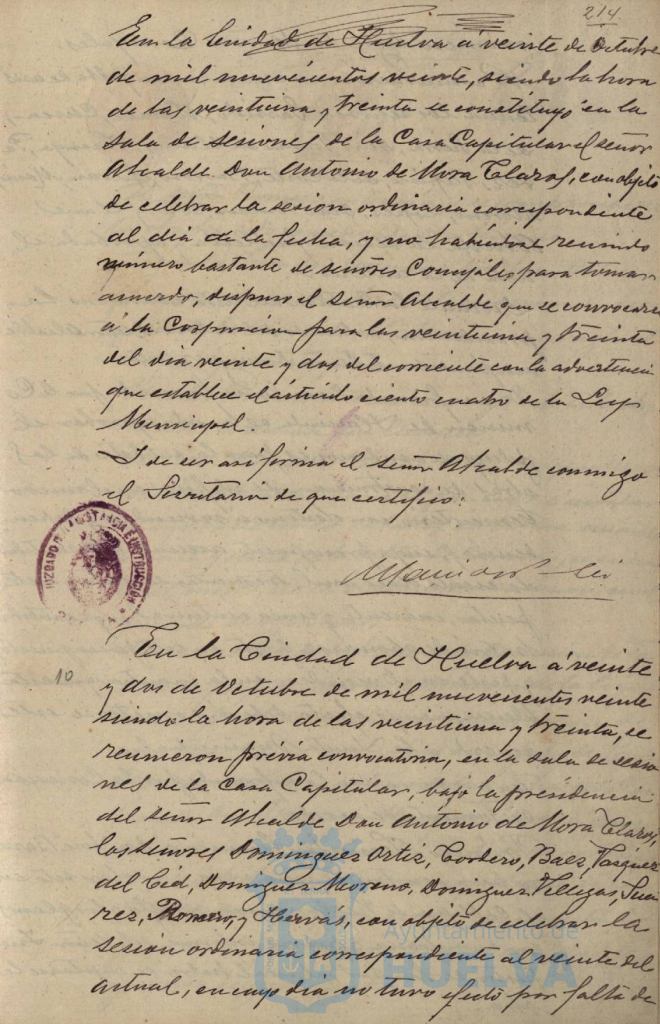 214
En la Ciudad de Huelva á veinte de Octubre
de mil nuevecientos veinte, siendo la hora
de las veintiuna y treinta se constituyó en la
Sala de sesiones de la Casa Capitular el señor
Alcalde Don Antonio de Mora Claros, con objeto
de celebrar la sesion ordinaria correspondiente
al dia de la fecha, y no habiéndose reunido
número bastante de señores Concejales para tomar
acuerdo, dispuso el señor Alcalde que se convocara
á la Corporacion para las veintiuna y treinta
del dia veinte y dos del corriente con la advertencia
que establece el artículo ciento cuatro de la Ley
Municipal.
Y de ser asi firma el señor Alcalde conmigo
el Secretario de que certifico:
JUZGADO DE 1ª INSTANCIA É INSTRUCCIÓN
En la Ciudad de Huelva á veinte
10
y dos de Octubre de mil nuevecientos veinte
siendo la hora de las veintiuna y treinta, se
reunieron prévia convocatoria, en la sala de sesio
nes de la Casa Capitular, bajo la presidencia
del señor Alcalde Don Antonio de Mora Claros,
los señores Dominguez Ortiz, Cordero, Baez, Vazquez
del Cid, Dominguez Moreno, Dominguez Villegas, Sua
rez, Romero, y Hervás, con objeto de celebrar la
sesion ordinaria correspondiente al veinte del
actual, en cuyo dia no tuvo efecto por falta de
Ayuntamiento de
HUELVA